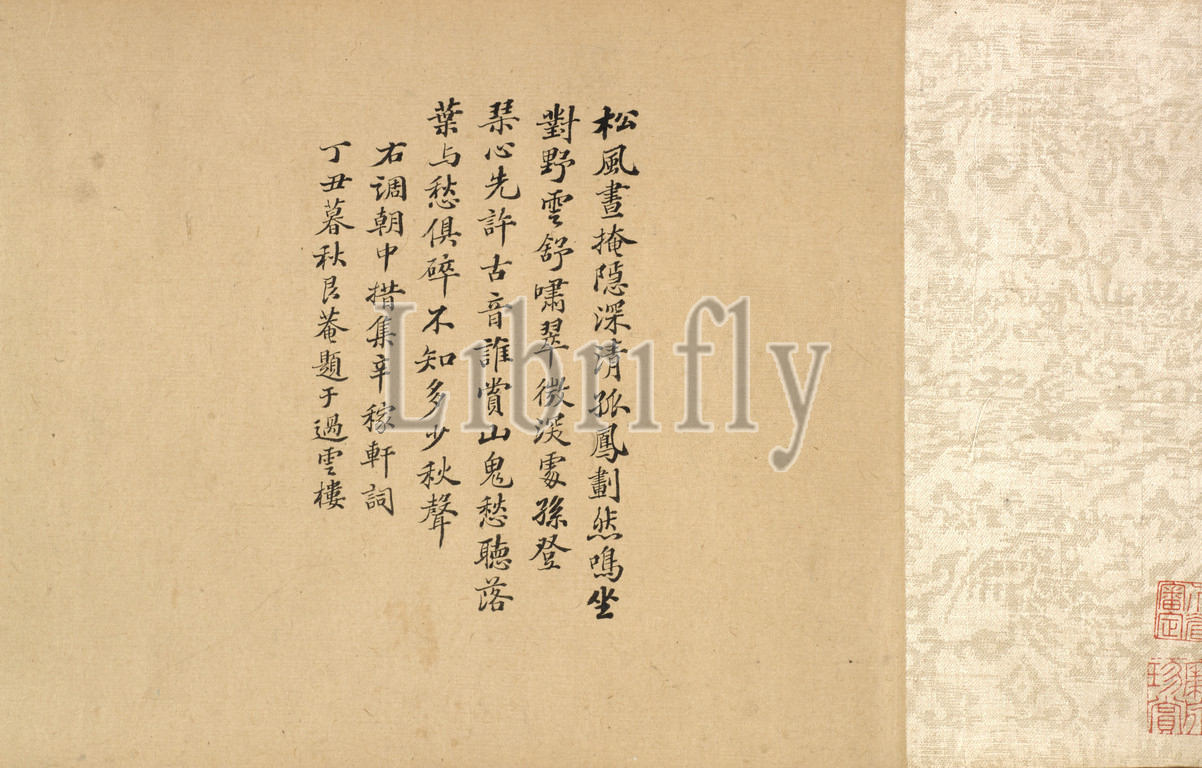 松風晝掩隱深清孤鳳劃然鳴坐
對野雲舒嘯翠微深處孫登
琹心先許古音誰賞山鬼愁聽落
葉与愁俱碎不知多少秋聲
右調朝中措集辛稼軒詞
丁丑暮秋艮菴題于過雲樓
審定
珍賞
Librifly